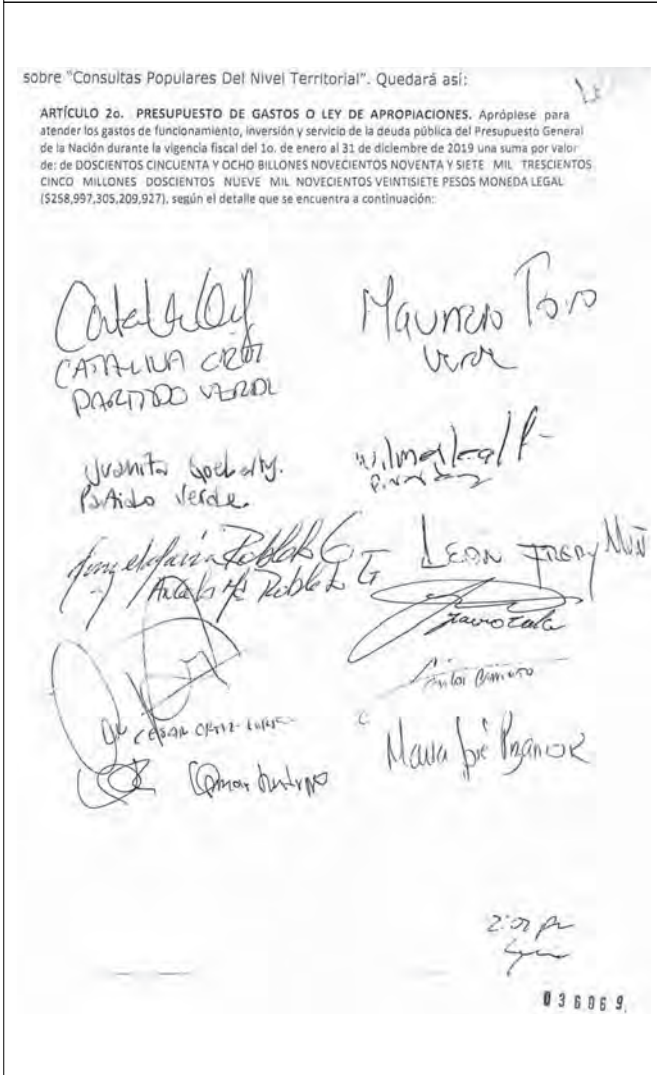 sobre "Consultas Populares Del Nivel Territorial". Quedará así:
ARTÍCULO 2o. PRESUPUESTO DE GASTOS O LEY DE APROPIACIONES. Aprópiese para
atender los gastos de funcionamiento, inversión y servicio de la deuda pública del Presupuesto General
de la Nación durante la vigencia fiscal del 1o. de enero al 31 de diciembre de 2019 una suma por valor
de: de DOSCIENTOS CINCUENTA Y OCHO BILLONES NOVECIENTOS NOVENTA Y SIETE MIL TRESCIENTOS
CINCO MILLONES DOSCIENTOS NUEVE MIL NOVECIENTOS VEINTISIETE PESOS MONEDA LEGAL
($258,997,305,209,927), según el detalle que se encuentra a continuación:
Mauricio Toro
Verde
CATALINA ORTIZ
PARTIDO VERDE
Juanita Goebertus.
Partido Verde.
Wilmer Leal P
Angela Ma Robledo G
LEON FREDY Muñ
CESAR ORTIZ
María José Pizarro R
Omar Restrepo
036069